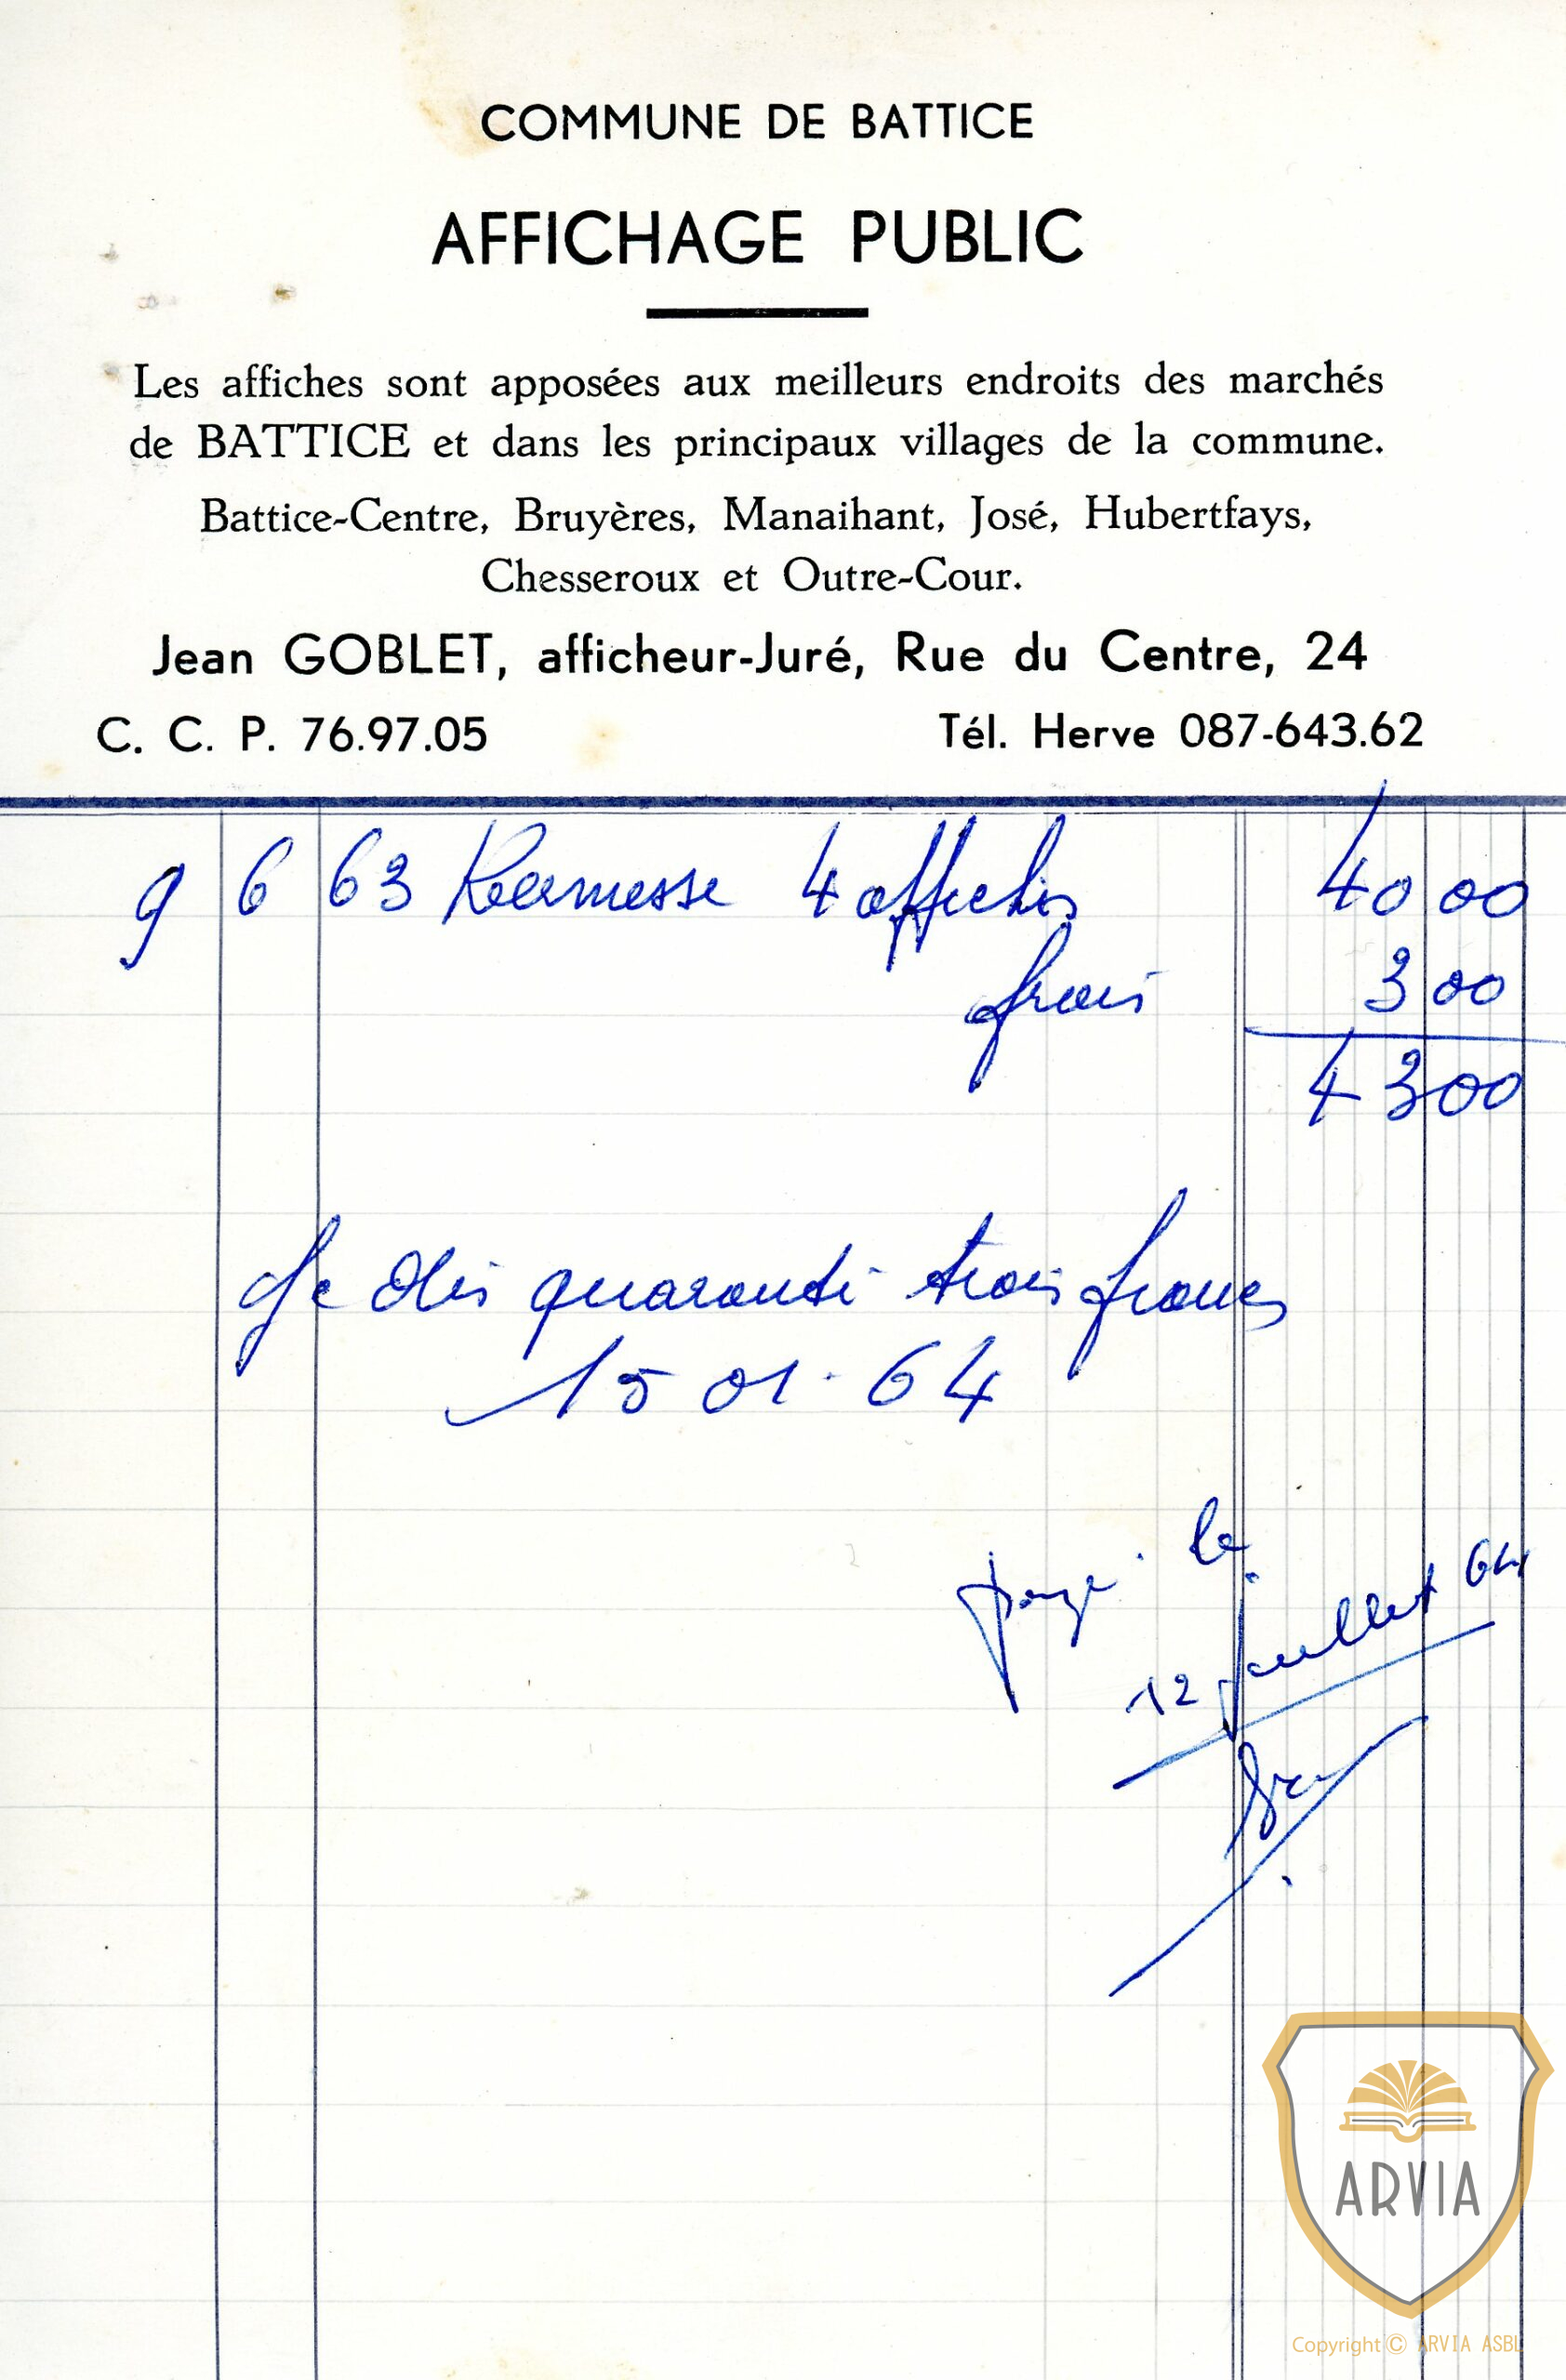 COMMUNE DE BATTICE
AFFICHAGE PUBLIC
Les affiches sont apposées aux meilleurs endroits des marchés
de BATTICE et dans les principaux villages de la commune.
Battice-Centre, Bruyères, Manaihant, José, Hubertfays,
Chesseroux et Outre-Cour.
Jean GOBLET, afficheur-Juré, Rue du Centre, 24
C. C. P. 76.97.05 Tél. Herve 087-643.62
9 6 63 Kermesse 4 affiches 40 00
frais 3 00
43 00
Je dis quarante trois francs
15 01. 64
payé le
12 juillet 64
ARVIA
Copyright © ARVIA ASBL